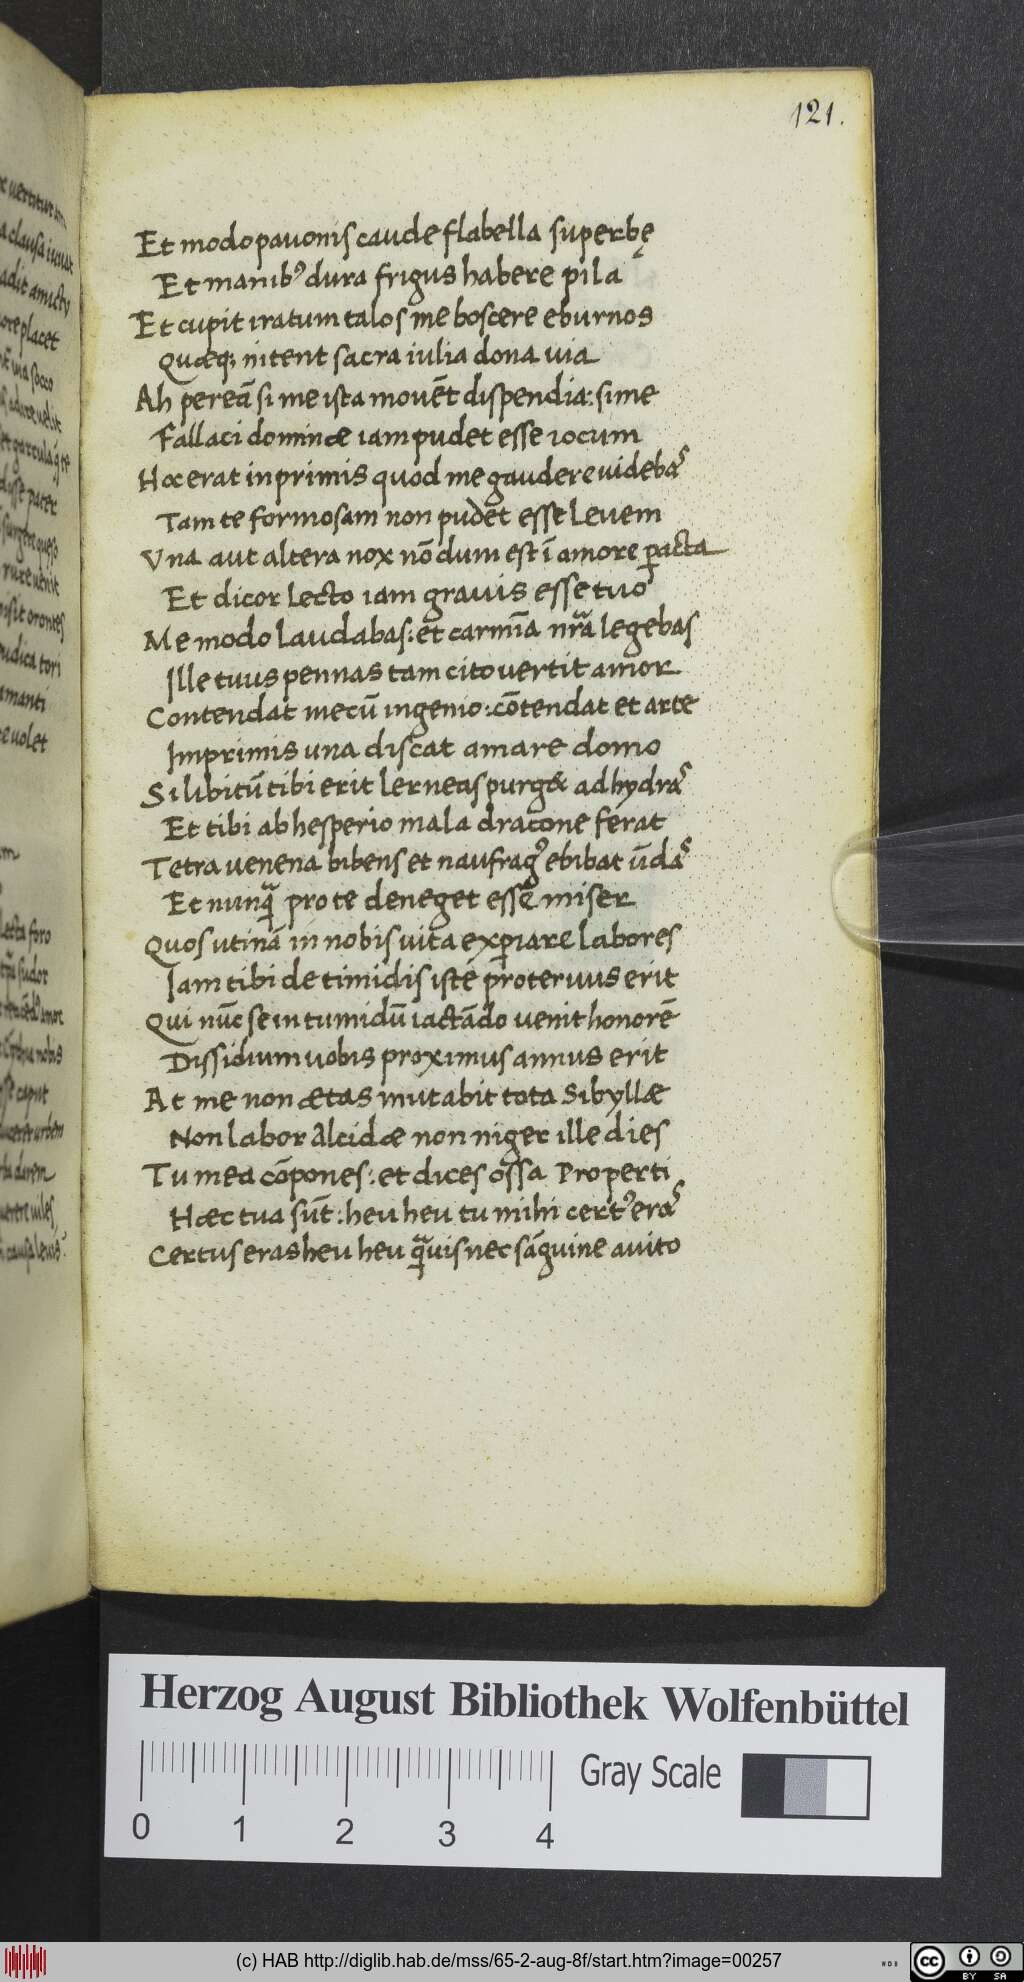 121.
Et modo pavonis caude flabella superbę
Et manibꝰ dura frigus habere pila
Et cupit iratum talos me boscere eburnos
Quæqꝫ nitent sacra iulia dona via
Ah pereā si me ista movēt dispendia: si me
Fallaci dominæ iam pudet esse iocum
Hoc erat inprimis quod me gaudere videbas
Tam te formosam non pudēt esse levem
Vna aut altera nox nōdum est ī amore ꝑacta
Et dicor lecto iam gravis esse tuo
Me modo laudabas: et carmīa nr̃a legebas
Ille tuus pennas tam cito vertit amor
Contendat mecū ingenio: cōtendat et arte
Imprimis una discat amare domo
Si libitū tibi erit lerneas purg& ad hydras
Et tibi ab hesperio mala dracone ferat
Tetra venena bibens et naufragꝰ ebibat ūdas
Et nunq̃ pro te deneget esse miser
Quos utinā in nobis vita exꝑiare labores
Iam tibi de timidis iste protervus erit
Qui nūc se in tumidū iactādo venit honorē
Dissidium vobis proximus annus erit
At me non ætas mutabit tota Sibyllæ
Non labor alcidæ non niger ille dies
Tu mea cōpones: et dices ossa Properti
Hæc tua sūt: heu heu tu mihi certꝰ eras
Certus eras heu heu q̃vis nec sāguine avito
Herzog August Bibliothek Wolfenbüttel
0 1 2 3 4
Gray Scale
(c) HAB http://diglib.hab.de/mss/65-2-aug-8f/start.htm?image=00257
cc BY SA